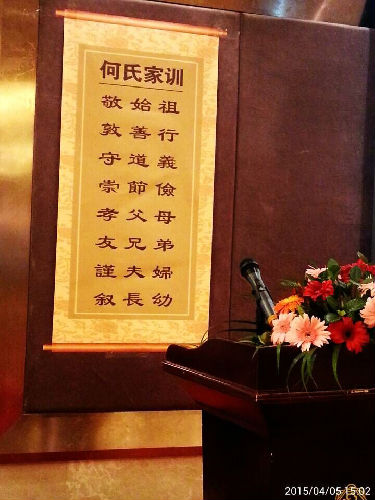 何氏家训
敬始祖
敦善行
守道義
崇節儉
孝父母
友兄弟
謹夫婦
叙長幼
2015/04/05 15:02